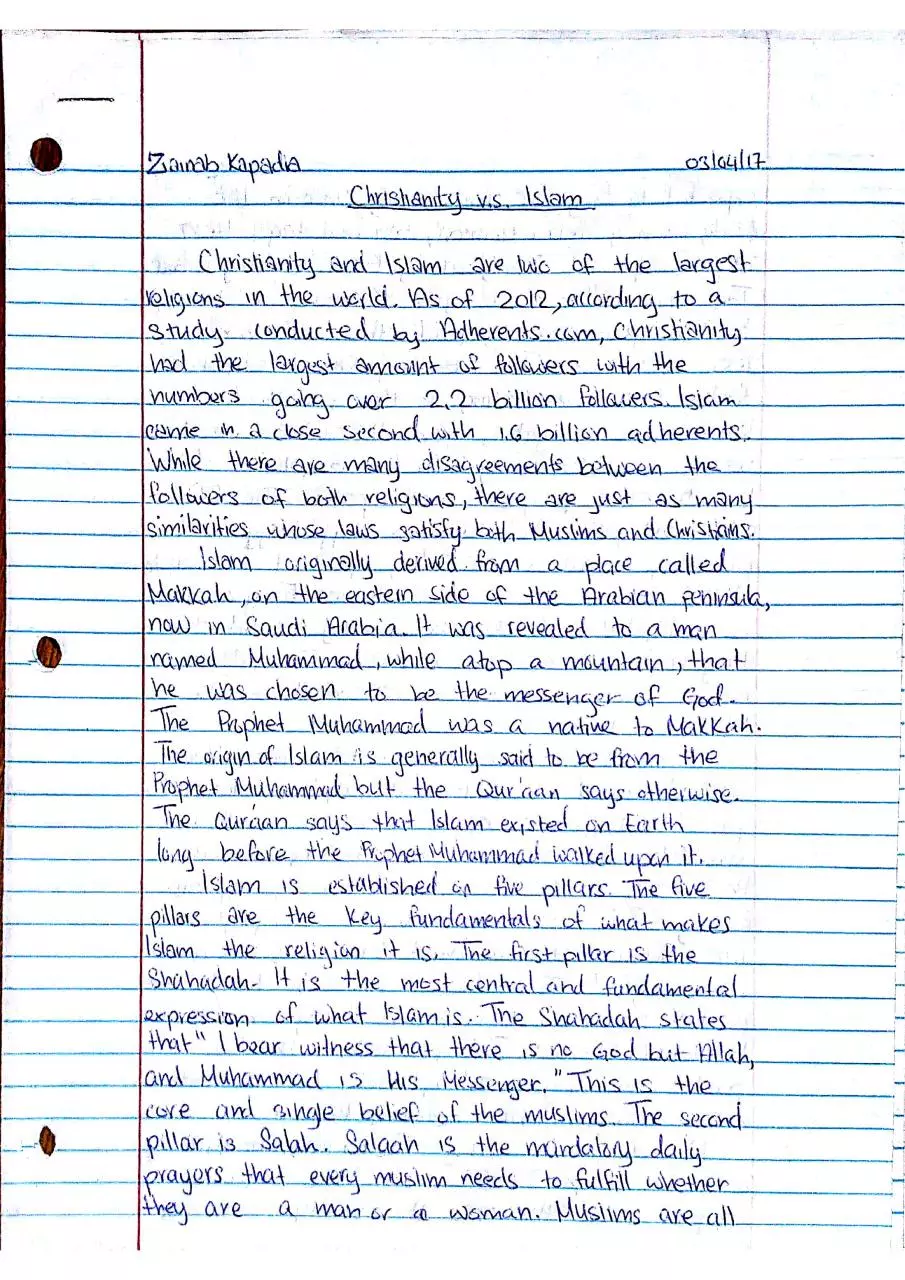 Zainab Kapadia 03/04/17
Christianity v.s. Islam
Christianity and Islam are two of the largest
religions in the world. As of 2012, according to a
study conducted by Adherents.com, Christianity
had the largest amount of followers with the
numbers going over 2.2 billion followers. Islam
came in a close second with 1.6 billion adherents.
While there are many disagreements between the
followers of both religions, there are just as many
similarities whose laws satisfy both Muslims and Christians.
Islam originally derived from a place called
Makkah, on the eastern side of the Arabian peninsula,
now in Saudi Arabia. It was revealed to a man
named Muhammad, while atop a mountain, that
he was chosen to be the messenger of God.
The Prophet Muhammad was a native to Makkah.
The origin of Islam is generally said to be from the
Prophet Muhammad but the Qur'aan says otherwise.
The Qur'aan says that Islam existed on Earth
long before the Prophet Muhammad walked upon it.
Islam is established on five pillars. The five
pillars are the key fundamentals of what makes
Islam the religion it is. The first pillar is the
Shahadah. It is the most central and fundamental
expression of what Islam is. The Shahadah states
that "I bear witness that there is no God but Allah,
and Muhammad is His Messenger." This is the
core and single belief of the muslims. The second
pillar is Salah. Salaah is the mandatory daily
prayers that every muslim needs to fulfill whether
they are a man or a woman. Muslims are all